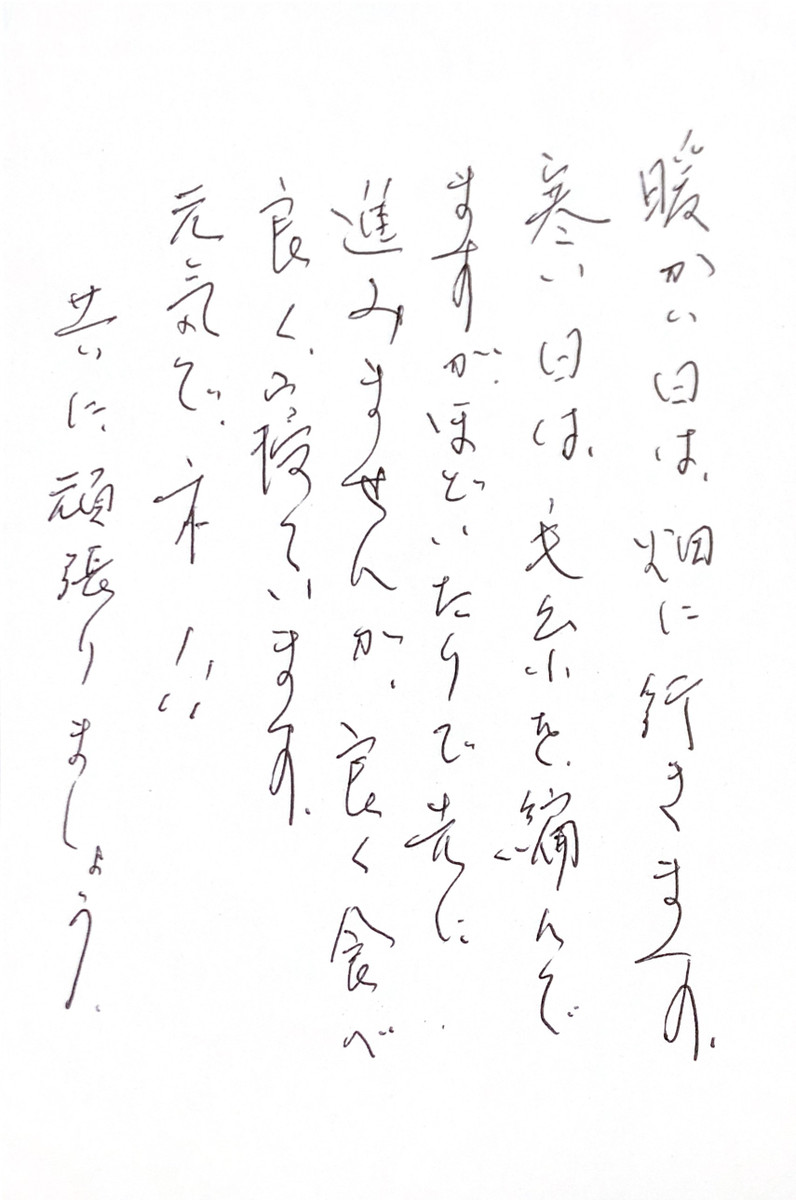 暖かい日は、畑に行きます。
寒い日は、毛糸を編んで
ますがほどいたりで先に
進みませんが、良く食べ
良く、寝ています。
元気で、ネ!!
共に、頑張りましょう。